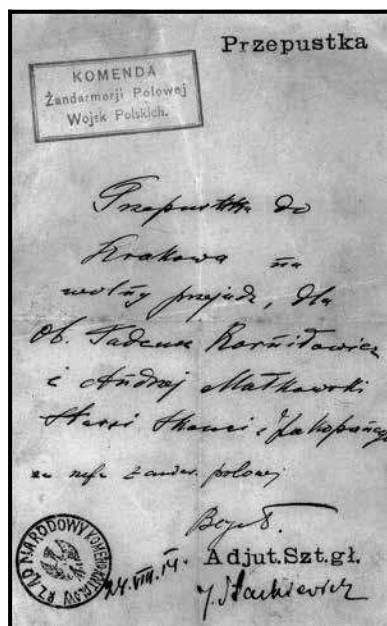 Przepustka
KOMENDA
Żandarmerji Polowej
Wojsk Polskich.
Przepustka do
Krakowa na
wolny przejazd, dla
Ob. Tadeusz Korniłowicz
i Andrzej Małkowski
Starsi Skauci z Zakopanego
za szefa żandar. polowej
RZĄD NARODOWY KOMENDA GŁÓW
24.VIII.14.
Adjut.Szt.gł.
J. Stachiewicz